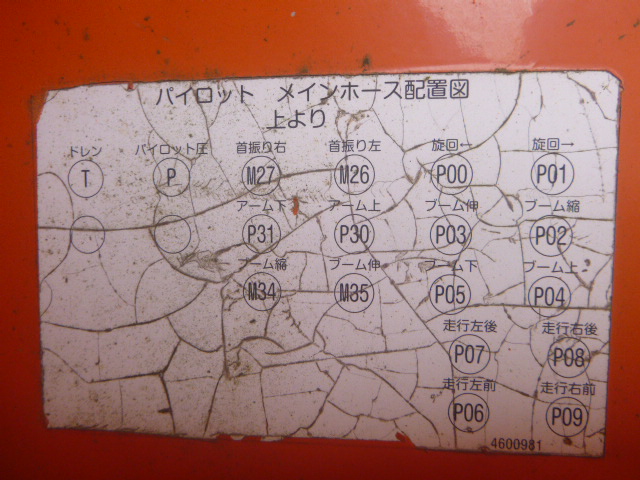 パイロット メインホース配置図
上より
ドレン パイロット圧 首振り右 首振り左 旋回→ 旋回→
T P M27 M26 P00 P01
アーム下 アーム上 ブーム伸 ブーム縮
P31 P30 P03 P02
ブーム縮 ブーム伸 ブーム下 ブーム上
M34 M35 P05 P04
走行左後 走行右後
P07 P08
走行左前 走行右前
P06 P09
4600981